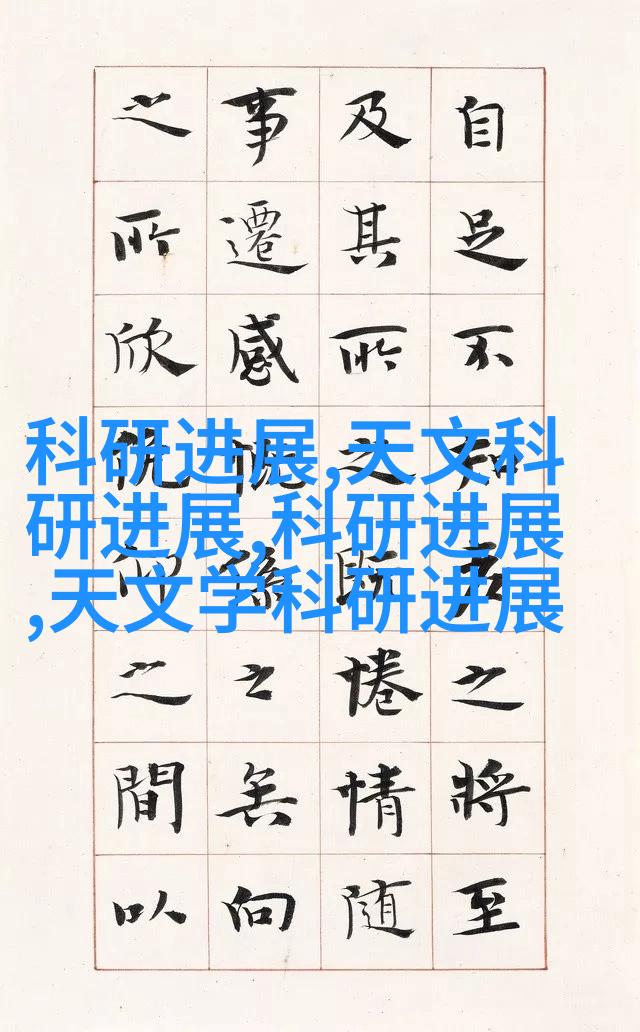 自足不知老之將至
及其所之既惓情隨
事遷感慨係之矣向
之所欣俛仰之間以
科研进展,天文科
研进展,科研进展
,天文学科研进展